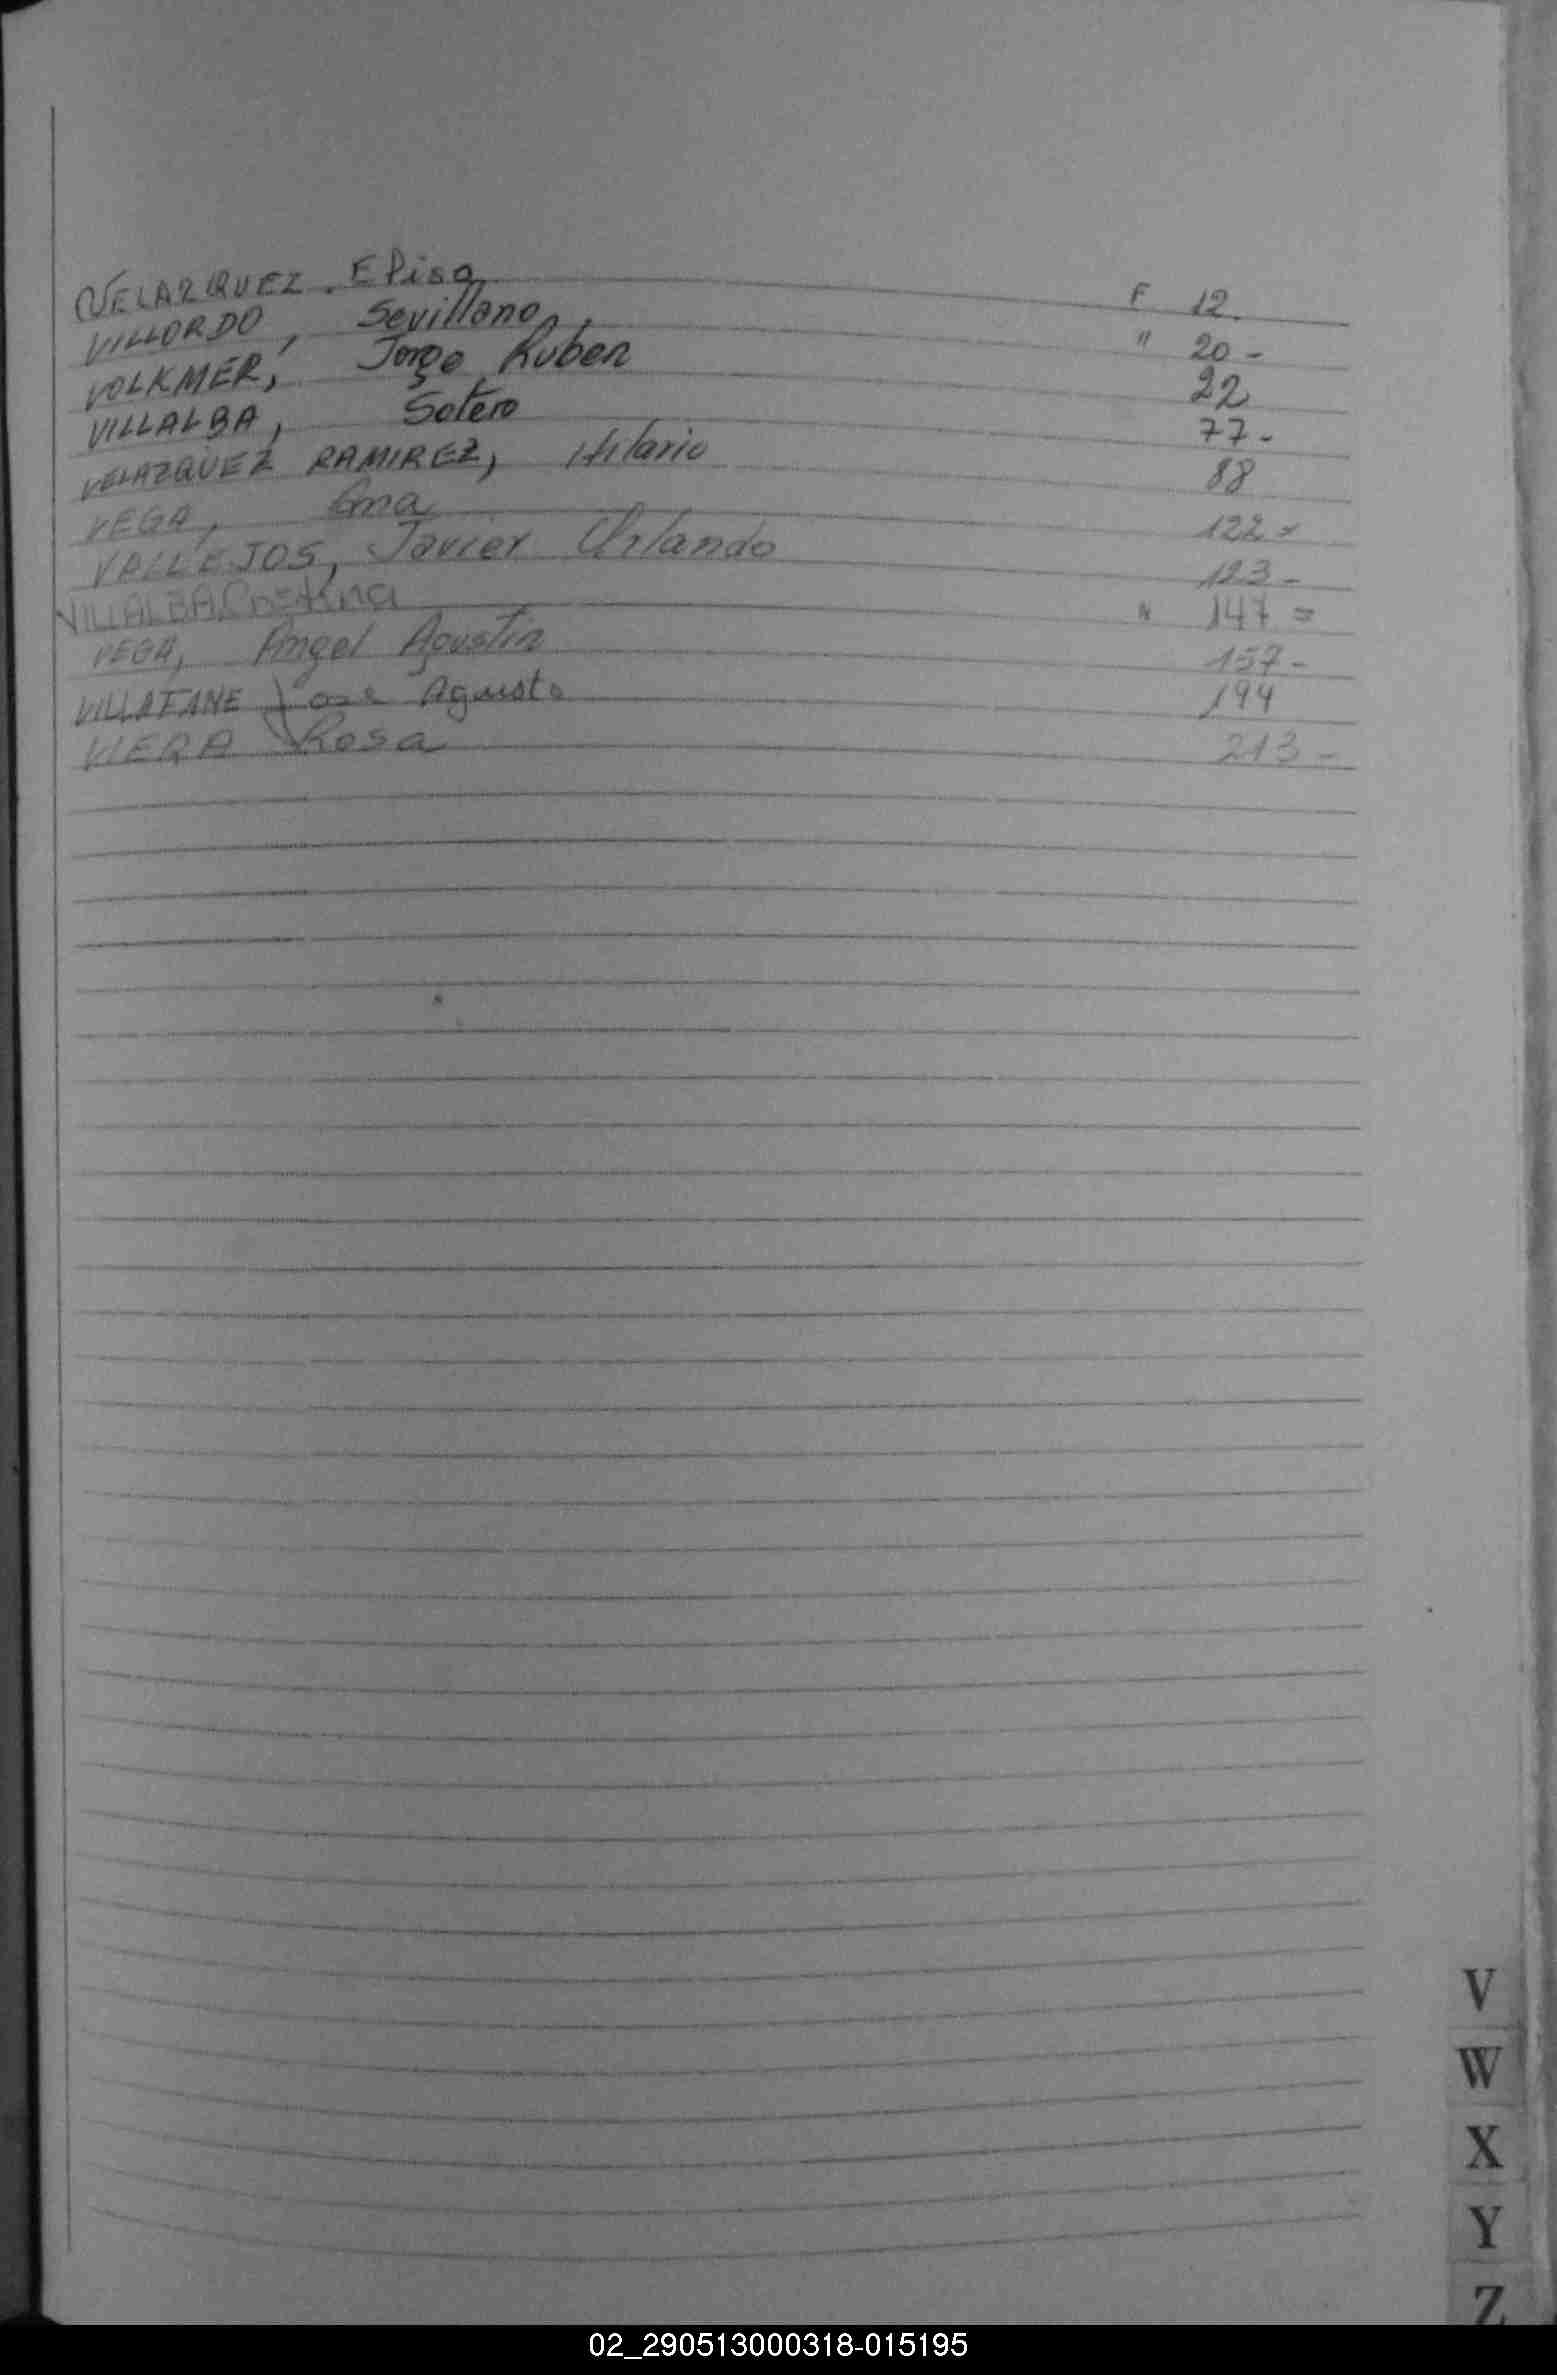 VELAZQUEZ. Elisa F 12.
VILLORDO, Sevillano, " 20 -
VOLKMER, Jorge Ruben 22
VILLALBA, Sotero 77 -
VELAZQUEZ RAMIREZ, Hilario 88
VEGA, Ana 122 =
VALLEJOS, Javier Orlando 123 -
VILLALBA Cristina " 147 =
VEGA, Angel Agustin 157 -
VILLAFANE Jose Agusto 194
VIERA Rosa 213 -
V
W
X
Y
Z
02_290513000318-015195